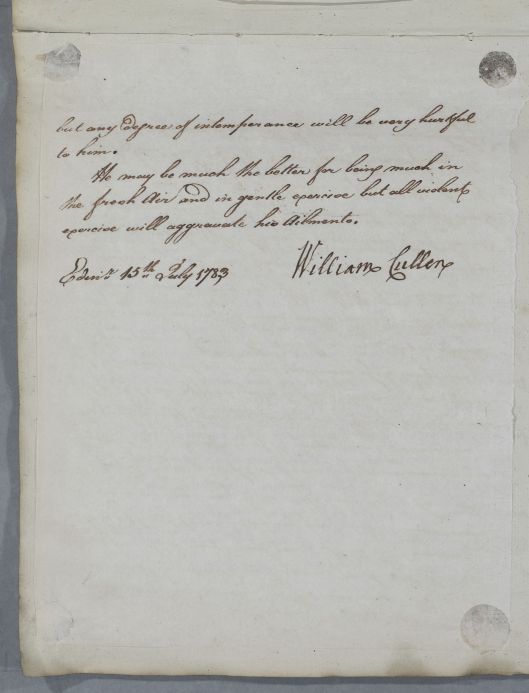 but any degree of intemperance will be very hurtful
to him.
He may be much the better for being much in
the fresh Air and in gentle exercise but all violent
exercise will aggravate his Ailments.
Edinr. 15th July 1783 William Cullen